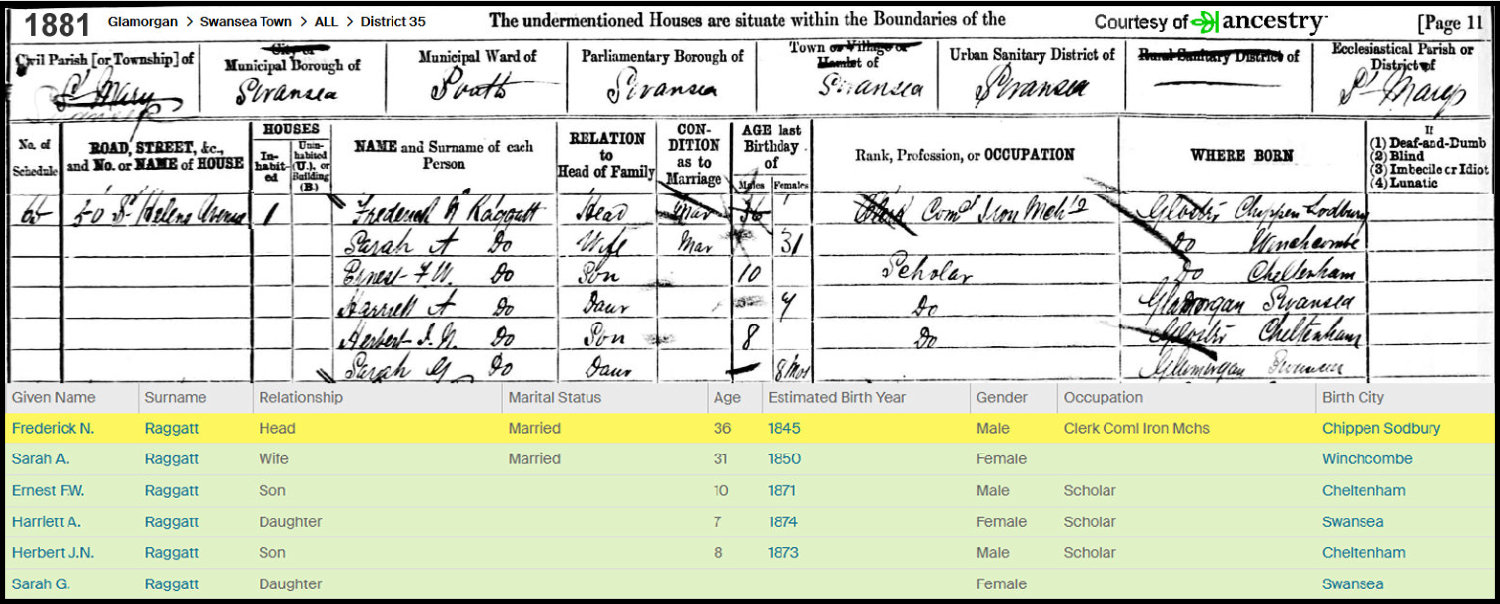 1881 Glamorgan > Swansea Town > ALL > District 35 The undermentioned Houses are situate within the Boundaries of the Courtesy of ancestry [Page 11
Civil Parish [or Township] of City or Municipal Borough of Municipal Ward of Parliamentary Borough of Town or Village or Hamlet of Urban Sanitary District of Rural Sanitary District of Ecclesiastical Parish or District of
St Mary Swansea South Swansea Swansea Swansea St Marys
No. of Schedule ROAD, STREET, &c., and No. or NAME of HOUSE HOUSES In-habit-ed Unin-habited (U.), or Building (B.) NAME and Surname of each Person RELATION to Head of Family CON-DITION as to Marriage AGE last Birthday of Males Females Rank, Profession, or OCCUPATION WHERE BORN If (1) Deaf-and-Dumb (2) Blind (3) Imbecile or Idiot (4) Lunatic
65 50 St Helens Avenue 1 Frederick N Raggatt Head Mar 36 Clerk Coml Iron Mchts Gloster Chippen Sodbury
Sarah A Do Wife Mar 31 Do Winchcombe
Ernest F W. Do Son 10 Scholar Do Cheltenham
Harriett A Do Daur 7 Do Glamorgan Swansea
Herbert J. N. Do Son 8 Do Gloster Cheltenham
Sarah G Do Daur 8 Mos Glamorgan Swansea
Given Name Surname Relationship Marital Status Age Estimated Birth Year Gender Occupation Birth City
Frederick N. Raggatt Head Married 36 1845 Male Clerk Coml Iron Mchs Chippen Sodbury
Sarah A. Raggatt Wife Married 31 1850 Female Winchcombe
Ernest F.W. Raggatt Son 10 1871 Male Scholar Cheltenham
Harriett A. Raggatt Daughter 7 1874 Female Scholar Swansea
Herbert J.N. Raggatt Son 8 1873 Male Scholar Cheltenham
Sarah G. Raggatt Daughter Female Swansea